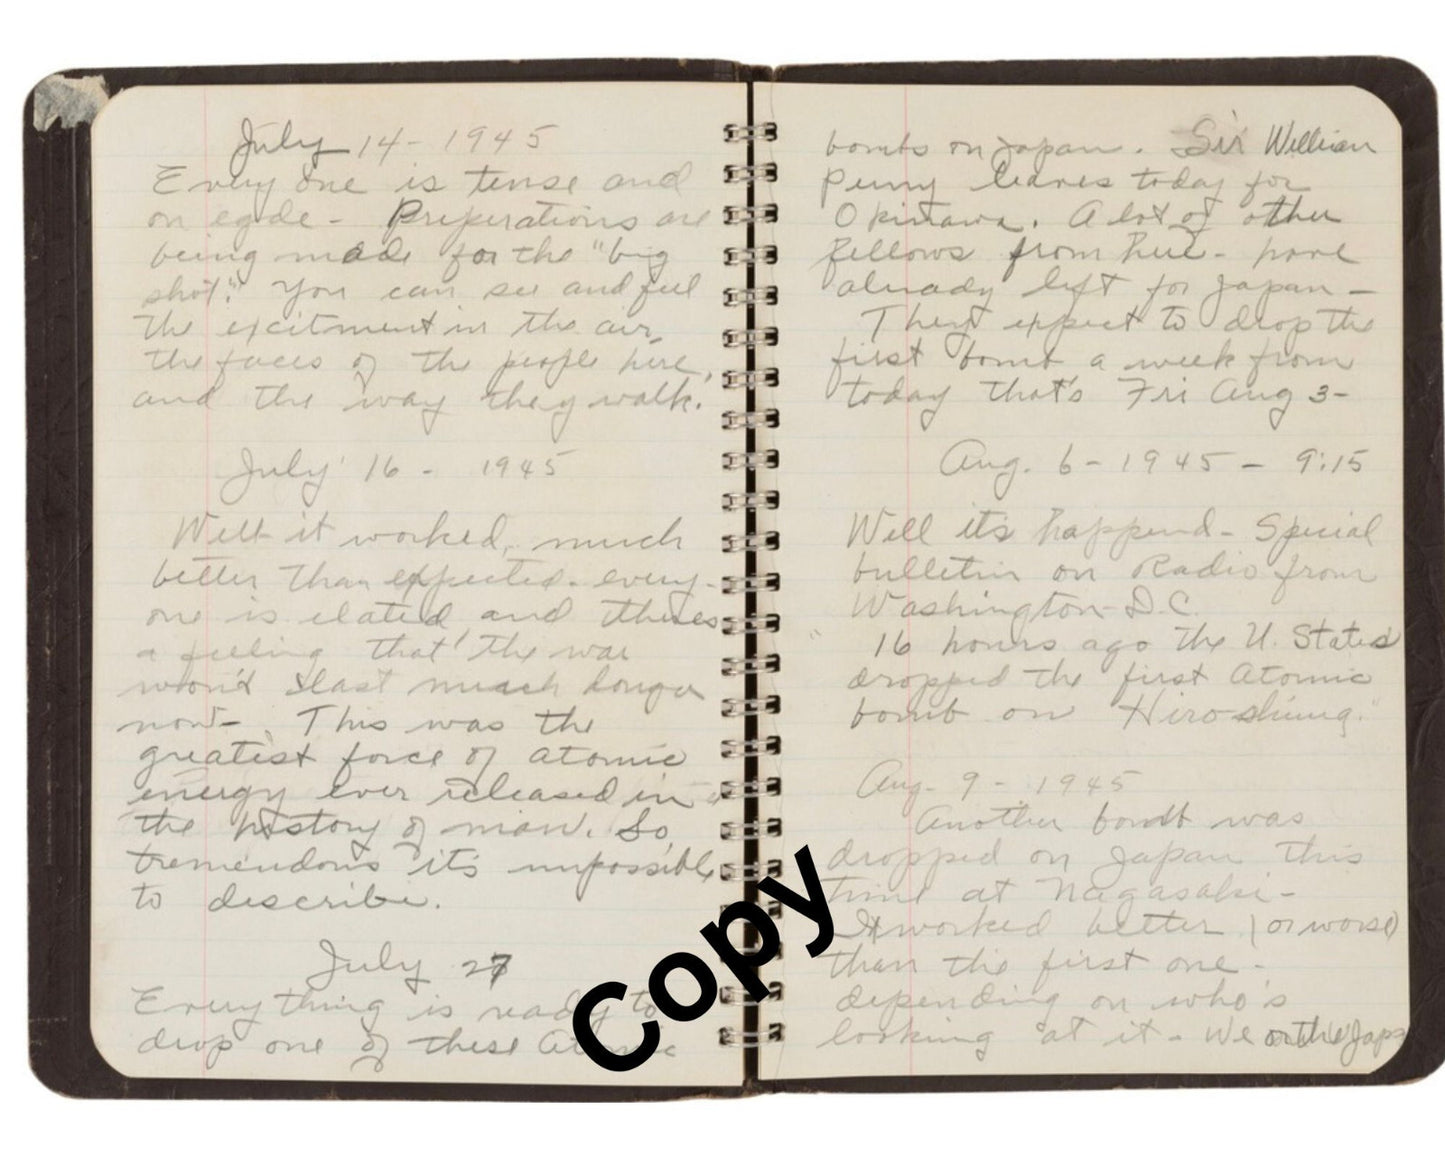 July 14 - 1945
Every one is tense and
on egde - Preperations are
being made for the "big
shot." You can see and feel
the excitment in the air,
the faces of the people here,
and the way they walk.
July 16 - 1945
Well it worked, much
better than expected - every-
one is elated and theres
a feeling that the war
won't last much longer
now - This was the
greatest force of atomic
energy ever released in
the history of man. So
tremendous it's impossible
to describe.
July 27
Every thing is ready to
drop one of these Atomic
bombs on Japan. Sir William
Penny leaves today for
Okinawa. A lot of other
fellows from here - have
already left for Japan -
They expect to drop the
first bomb a week from
today that's Fri Aug 3 -
Aug. 6 - 1945 - 9:15
Well it's happend - Special
bulletin on Radio from
Washington - D.C.
"16 hours ago the U. States
dropped the first Atomic
bomb on Hiroshima."
Aug. 9 - 1945
Another bomb was
dropped on Japan this
time at Nagasaki -
It worked better (or worse)
than the first one -
depending on who's
looking at it - We or the Japs
Copy